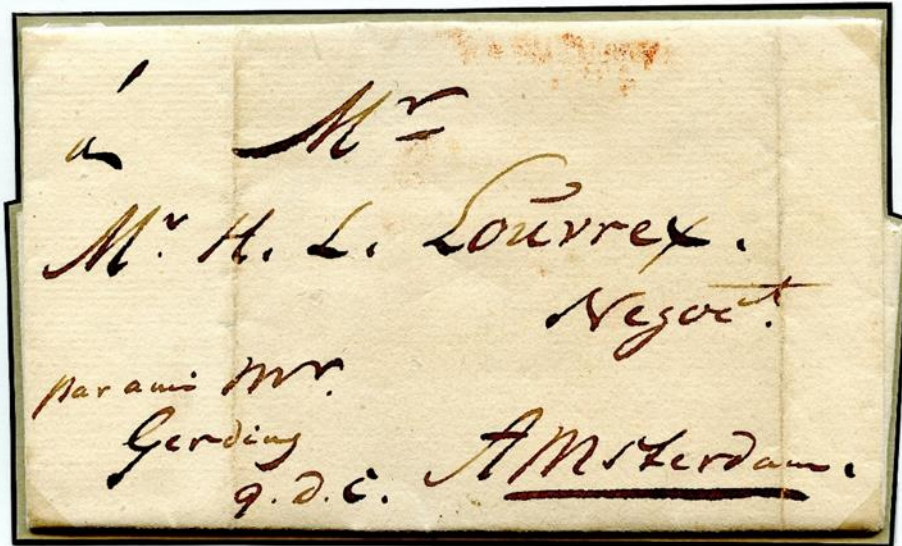 á Mr
Mr. H. L. Loūvrex.
Negoct.
par ami Mr.
Gerding
q.d.c. Amsterdam.